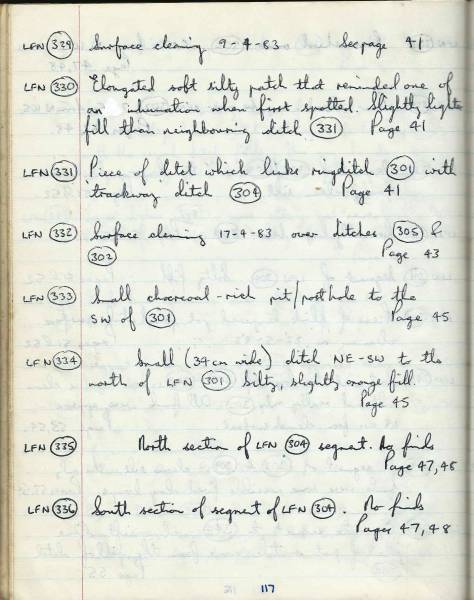 LFN 329 Surface cleaning 9-4-83 See page 41
LFN 330 Elongated soft silty patch that reminded one of
an inhumation when first spotted. Slightly lighter
fill than neighbouring ditch 331 Page 41
LFN 331 Piece of ditch which links ringditch 301 with
trackway ditch 304 Page 41
LFN 332 Surface cleaning 17-4-83 over ditches 305 &
302 Page 43
LFN 333 Small charcoal-rich pit/posthole to the
SW of 301 Page 45
LFN 334 Small (34cm wide) ditch NE-SW to the
north of LFN 301 Silty, slightly orange fill.
Page 45
LFN 335 North section of LFN 304 segment. No finds
Page 47,48
LFN 336 South section of segment of LFN 304. No finds
Pages 47,48
117